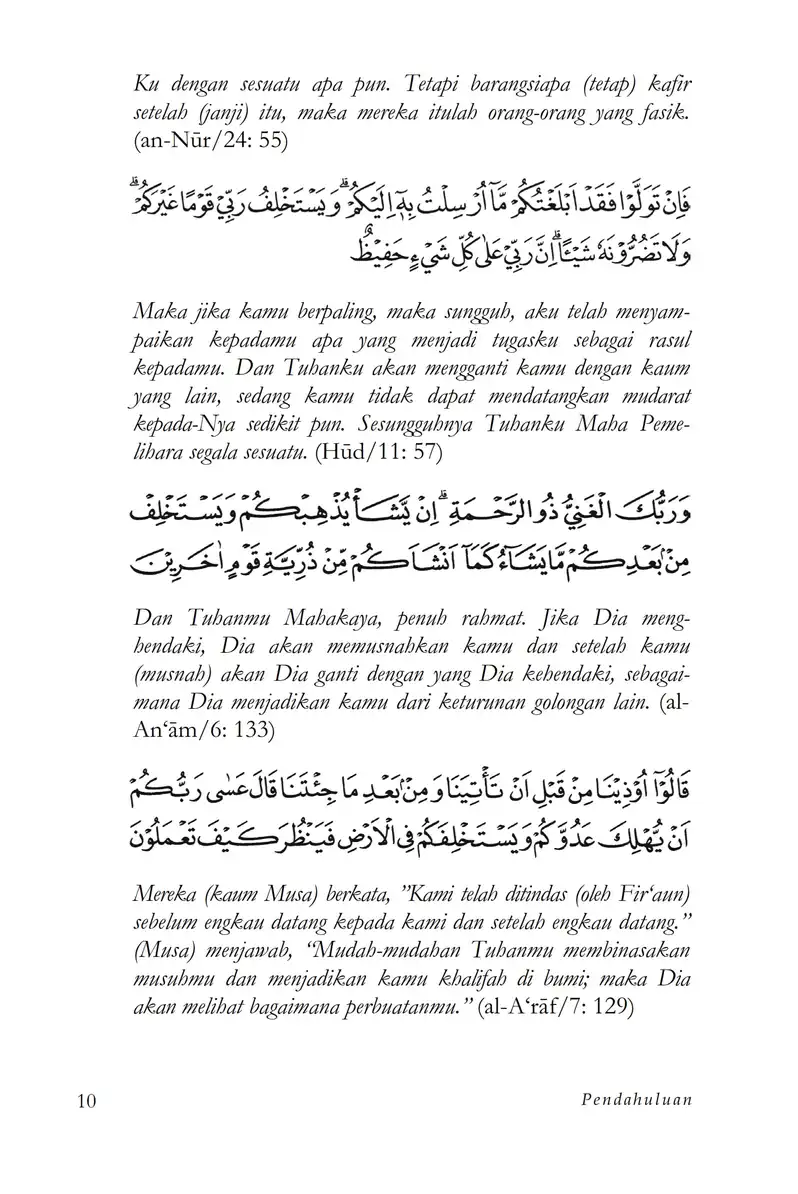 Ku dengan sesuatu apa pun. Tetapi barangsiapa (tetap) kafir
setelah (janji) itu, maka mereka itulah orang-orang yang fasik.
(an-Nūr/24: 55)
فَاِنْ تَوَلَّوْا فَقَدْ اَبْلَغْتُكُمْ مَّآ اُرْسِلْتُ بِهٖٓ اِلَيْكُمْۗ وَيَسْتَخْلِفُ رَبِّيْ قَوْمًا غَيْرَكُمْۗ
وَلَا تَضُرُّوْنَهٗ شَيْـًٔاۗ اِنَّ رَبِّيْ عَلٰى كُلِّ شَيْءٍ حَفِيْظٌ
Maka jika kamu berpaling, maka sungguh, aku telah menyam-
paikan kepadamu apa yang menjadi tugasku sebagai rasul
kepadamu. Dan Tuhanku akan mengganti kamu dengan kaum
yang lain, sedang kamu tidak dapat mendatangkan mudarat
kepada-Nya sedikit pun. Sesungguhnya Tuhanku Maha Peme-
lihara segala sesuatu. (Hūd/11: 57)
وَرَبُّكَ الْغَنِيُّ ذُو الرَّحْمَةِۗ اِنْ يَّشَأْ يُذْهِبْكُمْ وَيَسْتَخْلِفْ
مِنْۢ بَعْدِكُمْ مَّا يَشَاۤءُ كَمَآ اَنْشَاَكُمْ مِّنْ ذُرِّيَّةِ قَوْمٍ اٰخَرِيْنَ
Dan Tuhanmu Mahakaya, penuh rahmat. Jika Dia meng-
hendaki, Dia akan memusnahkan kamu dan setelah kamu
(musnah) akan Dia ganti dengan yang Dia kehendaki, sebagai-
mana Dia menjadikan kamu dari keturunan golongan lain. (al-
An‘ām/6: 133)
قَالُوْٓا اُوْذِيْنَا مِنْ قَبْلِ اَنْ تَأْتِيَنَا وَمِنْۢ بَعْدِ مَا جِئْتَنَا قَالَ عَسٰى رَبُّكُمْ
اَنْ يُّهْلِكَ عَدُوَّكُمْ وَيَسْتَخْلِفَكُمْ فِى الْاَرْضِ فَيَنْظُرَ كَيْفَ تَعْمَلُوْنَ
Mereka (kaum Musa) berkata, ”Kami telah ditindas (oleh Fir‘aun)
sebelum engkau datang kepada kami dan setelah engkau datang.”
(Musa) menjawab, “Mudah-mudahan Tuhanmu membinasakan
musuhmu dan menjadikan kamu khalifah di bumi; maka Dia
akan melihat bagaimana perbuatanmu.” (al-A‘rāf/7: 129)
10 Pendahuluan